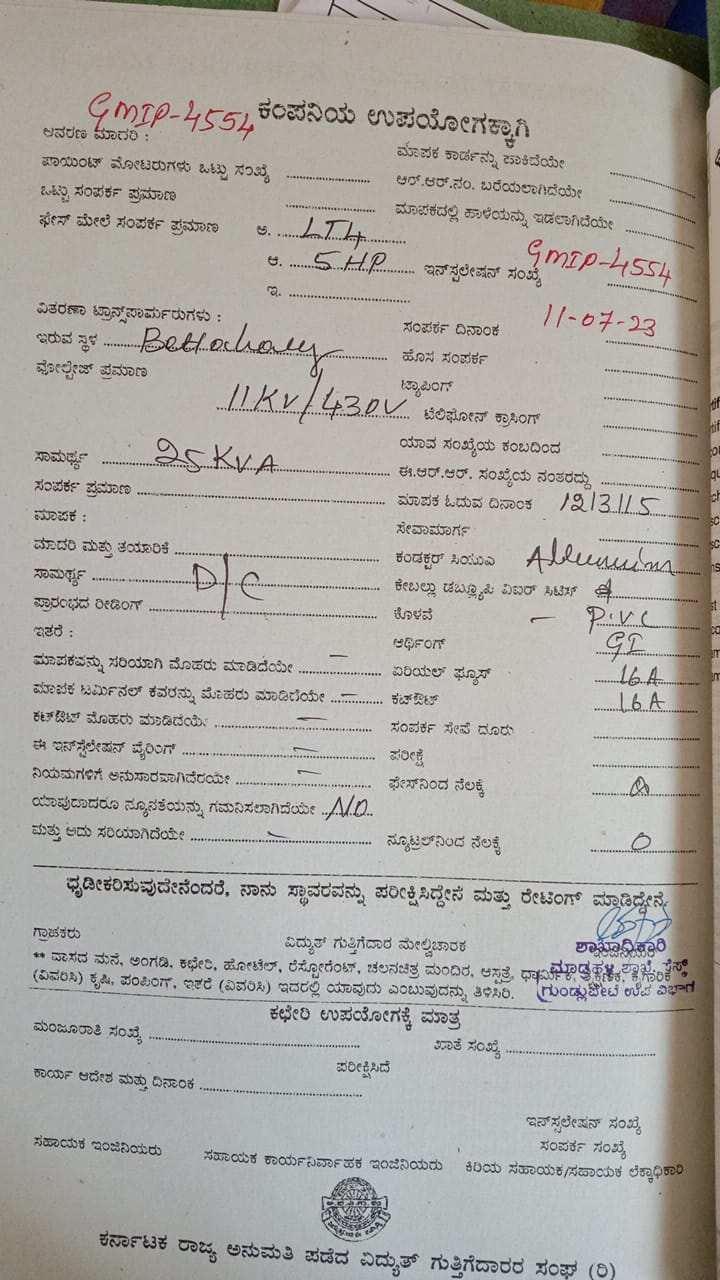 GMIP-4554 ಕಂಪನಿಯ ಉಪಯೋಗಕ್ಕಾಗಿ
ಆವರಣ ಮಾದರಿ :
ಮಾಪಕ ಕಾರ್ಡನ್ನು ಹಾಕಿದೆಯೇ
ಪಾಯಿಂಟ್ ಮೋಟರುಗಳು ಒಟ್ಟು ಸಂಖ್ಯೆ
ಆರ್.ಆರ್.ನಂ. ಬರೆಯಲಾಗಿದೆಯೇ
ಒಟ್ಟು ಸಂಪರ್ಕ ಪ್ರಮಾಣ
ಮಾಪಕದಲ್ಲಿ ಹಾಳೆಯನ್ನು ಇಡಲಾಗಿದೆಯೇ
ಫೇಸ್ ಮೇಲೆ ಸಂಪರ್ಕ ಪ್ರಮಾಣ ಅ. LT4
ಆ. 5HP ಇನ್‌ಸ್ಟಲೇಷನ್ ಸಂಖ್ಯೆ GMIP-4554
ಇ.
ವಿತರಣಾ ಟ್ರಾನ್ಸ್‌ಫಾರ್ಮರುಗಳು :
ಸಂಪರ್ಕ ದಿನಾಂಕ 11-07-23
ಇರುವ ಸ್ಥಳ
ಹೊಸ ಸಂಪರ್ಕ
ವೋಲ್ಟೇಜ್ ಪ್ರಮಾಣ
ಟ್ಯಾಪಿಂಗ್
11KV/430V ಟೆಲಿಫೋನ್ ಕ್ರಾಸಿಂಗ್
ಯಾವ ಸಂಖ್ಯೆಯ ಕಂಬದಿಂದ
ಸಾಮರ್ಥ್ಯ 25KVA
ಈ.ಆರ್.ಆರ್. ಸಂಖ್ಯೆಯ ನಂತರದ್ದು
ಸಂಪರ್ಕ ಪ್ರಮಾಣ
ಮಾಪಕ ಓದುವ ದಿನಾಂಕ
ಮಾಪಕ :
ಸೇವಾಮಾರ್ಗ
ಮಾದರಿ ಮತ್ತು ತಯಾರಿಕೆ
ಕಂಡಕ್ಟರ್ ಸಿಯುಎ
ಸಾಮರ್ಥ್ಯ D/C
ಕೇಬಲ್ಲು ಡಬ್ಲ್ಯೂಪಿ ವಿಐಆರ್ ಸಿಟಿಸ್
ಪ್ರಾರಂಭದ ರೀಡಿಂಗ್
ಕೊಳವೆ - P.V.C
ಇತರೆ :
ಆರ್ಥಿಂಗ್ GI
ಮಾಪಕವನ್ನು ಸರಿಯಾಗಿ ಮೊಹರು ಮಾಡಿದೆಯೇ -
ಏರಿಯಲ್ ಫ್ಯೂಸ್ 16A
ಮಾಪಕ ಟರ್ಮಿನಲ್ ಕವರನ್ನು ಮೊಹರು ಮಾಡಿದೆಯೇ -
ಕಟ್‌ಔಟ್ 16A
ಕಟ್‌ಔಟ್ ಮೊಹರು ಮಾಡಿದೆಯೇ -
ಸಂಪರ್ಕ ಸೇವೆ ದೂರು
ಈ ಇನ್‌ಸ್ಟಲೇಷನ್ ವೈರಿಂಗ್ -
ಪರೀಕ್ಷೆ
ನಿಯಮಗಳಿಗೆ ಅನುಸಾರವಾಗಿದೆರಯೇ -
ಫೇಸ್‌ನಿಂದ ನೆಲಕ್ಕೆ
ಯಾವುದಾದರೂ ನ್ಯೂನತೆಯನ್ನು ಗಮನಿಸಲಾಗಿದೆಯೇ NO
ಮತ್ತು ಅದು ಸರಿಯಾಗಿದೆಯೇ -
ನ್ಯೂಟ್ರಲ್‌ನಿಂದ ನೆಲಕ್ಕೆ 0
ಧೃಡೀಕರಿಸುವುದೇನೆಂದರೆ, ನಾನು ಸ್ಥಾವರವನ್ನು ಪರೀಕ್ಷಿಸಿದ್ದೇನೆ ಮತ್ತು ರೇಟಿಂಗ್ ಮಾಡಿದ್ದೇನೆ.
ಗ್ರಾಹಕರು ವಿದ್ಯುತ್ ಗುತ್ತಿಗೆದಾರ ಮೇಲ್ವಿಚಾರಕ
ಶಾಖಾಧಿಕಾರಿ
** ವಾಸದ ಮನೆ, ಅಂಗಡಿ, ಕಛೇರಿ, ಹೋಟೆಲ್, ರೆಸ್ಟೋರೆಂಟ್, ಚಲನಚಿತ್ರ ಮಂದಿರ, ಆಸ್ಪತ್ರೆ, ಧಾರ್ಮಿಕ,
(ವಿವರಿಸಿ) ಕೃಷಿ, ಪಂಪಿಂಗ್, ಇತರೆ (ವಿವರಿಸಿ) ಇದರಲ್ಲಿ ಯಾವುದು ಎಂಬುವುದನ್ನು ತಿಳಿಸಿರಿ. ಗುಂಡ್ಲುಪೇಟೆ ಉಪ ವಿಭಾಗ
ಕಛೇರಿ ಉಪಯೋಗಕ್ಕೆ ಮಾತ್ರ
ಮಂಜೂರಾತಿ ಸಂಖ್ಯೆ
ಖಾತೆ ಸಂಖ್ಯೆ
ಪರೀಕ್ಷಿಸಿದೆ
ಕಾರ್ಯ ಆದೇಶ ಮತ್ತು ದಿನಾಂಕ
ಇನ್‌ಸ್ಟಲೇಷನ್ ಸಂಖ್ಯೆ
ಸಂಪರ್ಕ ಸಂಖ್ಯೆ
ಸಹಾಯಕ ಇಂಜಿನಿಯರು ಸಹಾಯಕ ಕಾರ್ಯನಿರ್ವಾಹಕ ಇಂಜಿನಿಯರು ಕಿರಿಯ ಸಹಾಯಕ/ಸಹಾಯಕ ಲೆಕ್ಕಾಧಿಕಾರಿ
ಕರ್ನಾಟಕ ರಾಜ್ಯ ಅನುಮತಿ ಪಡೆದ ವಿದ್ಯುತ್ ಗುತ್ತಿಗೆದಾರರ ಸಂಘ (ರಿ)